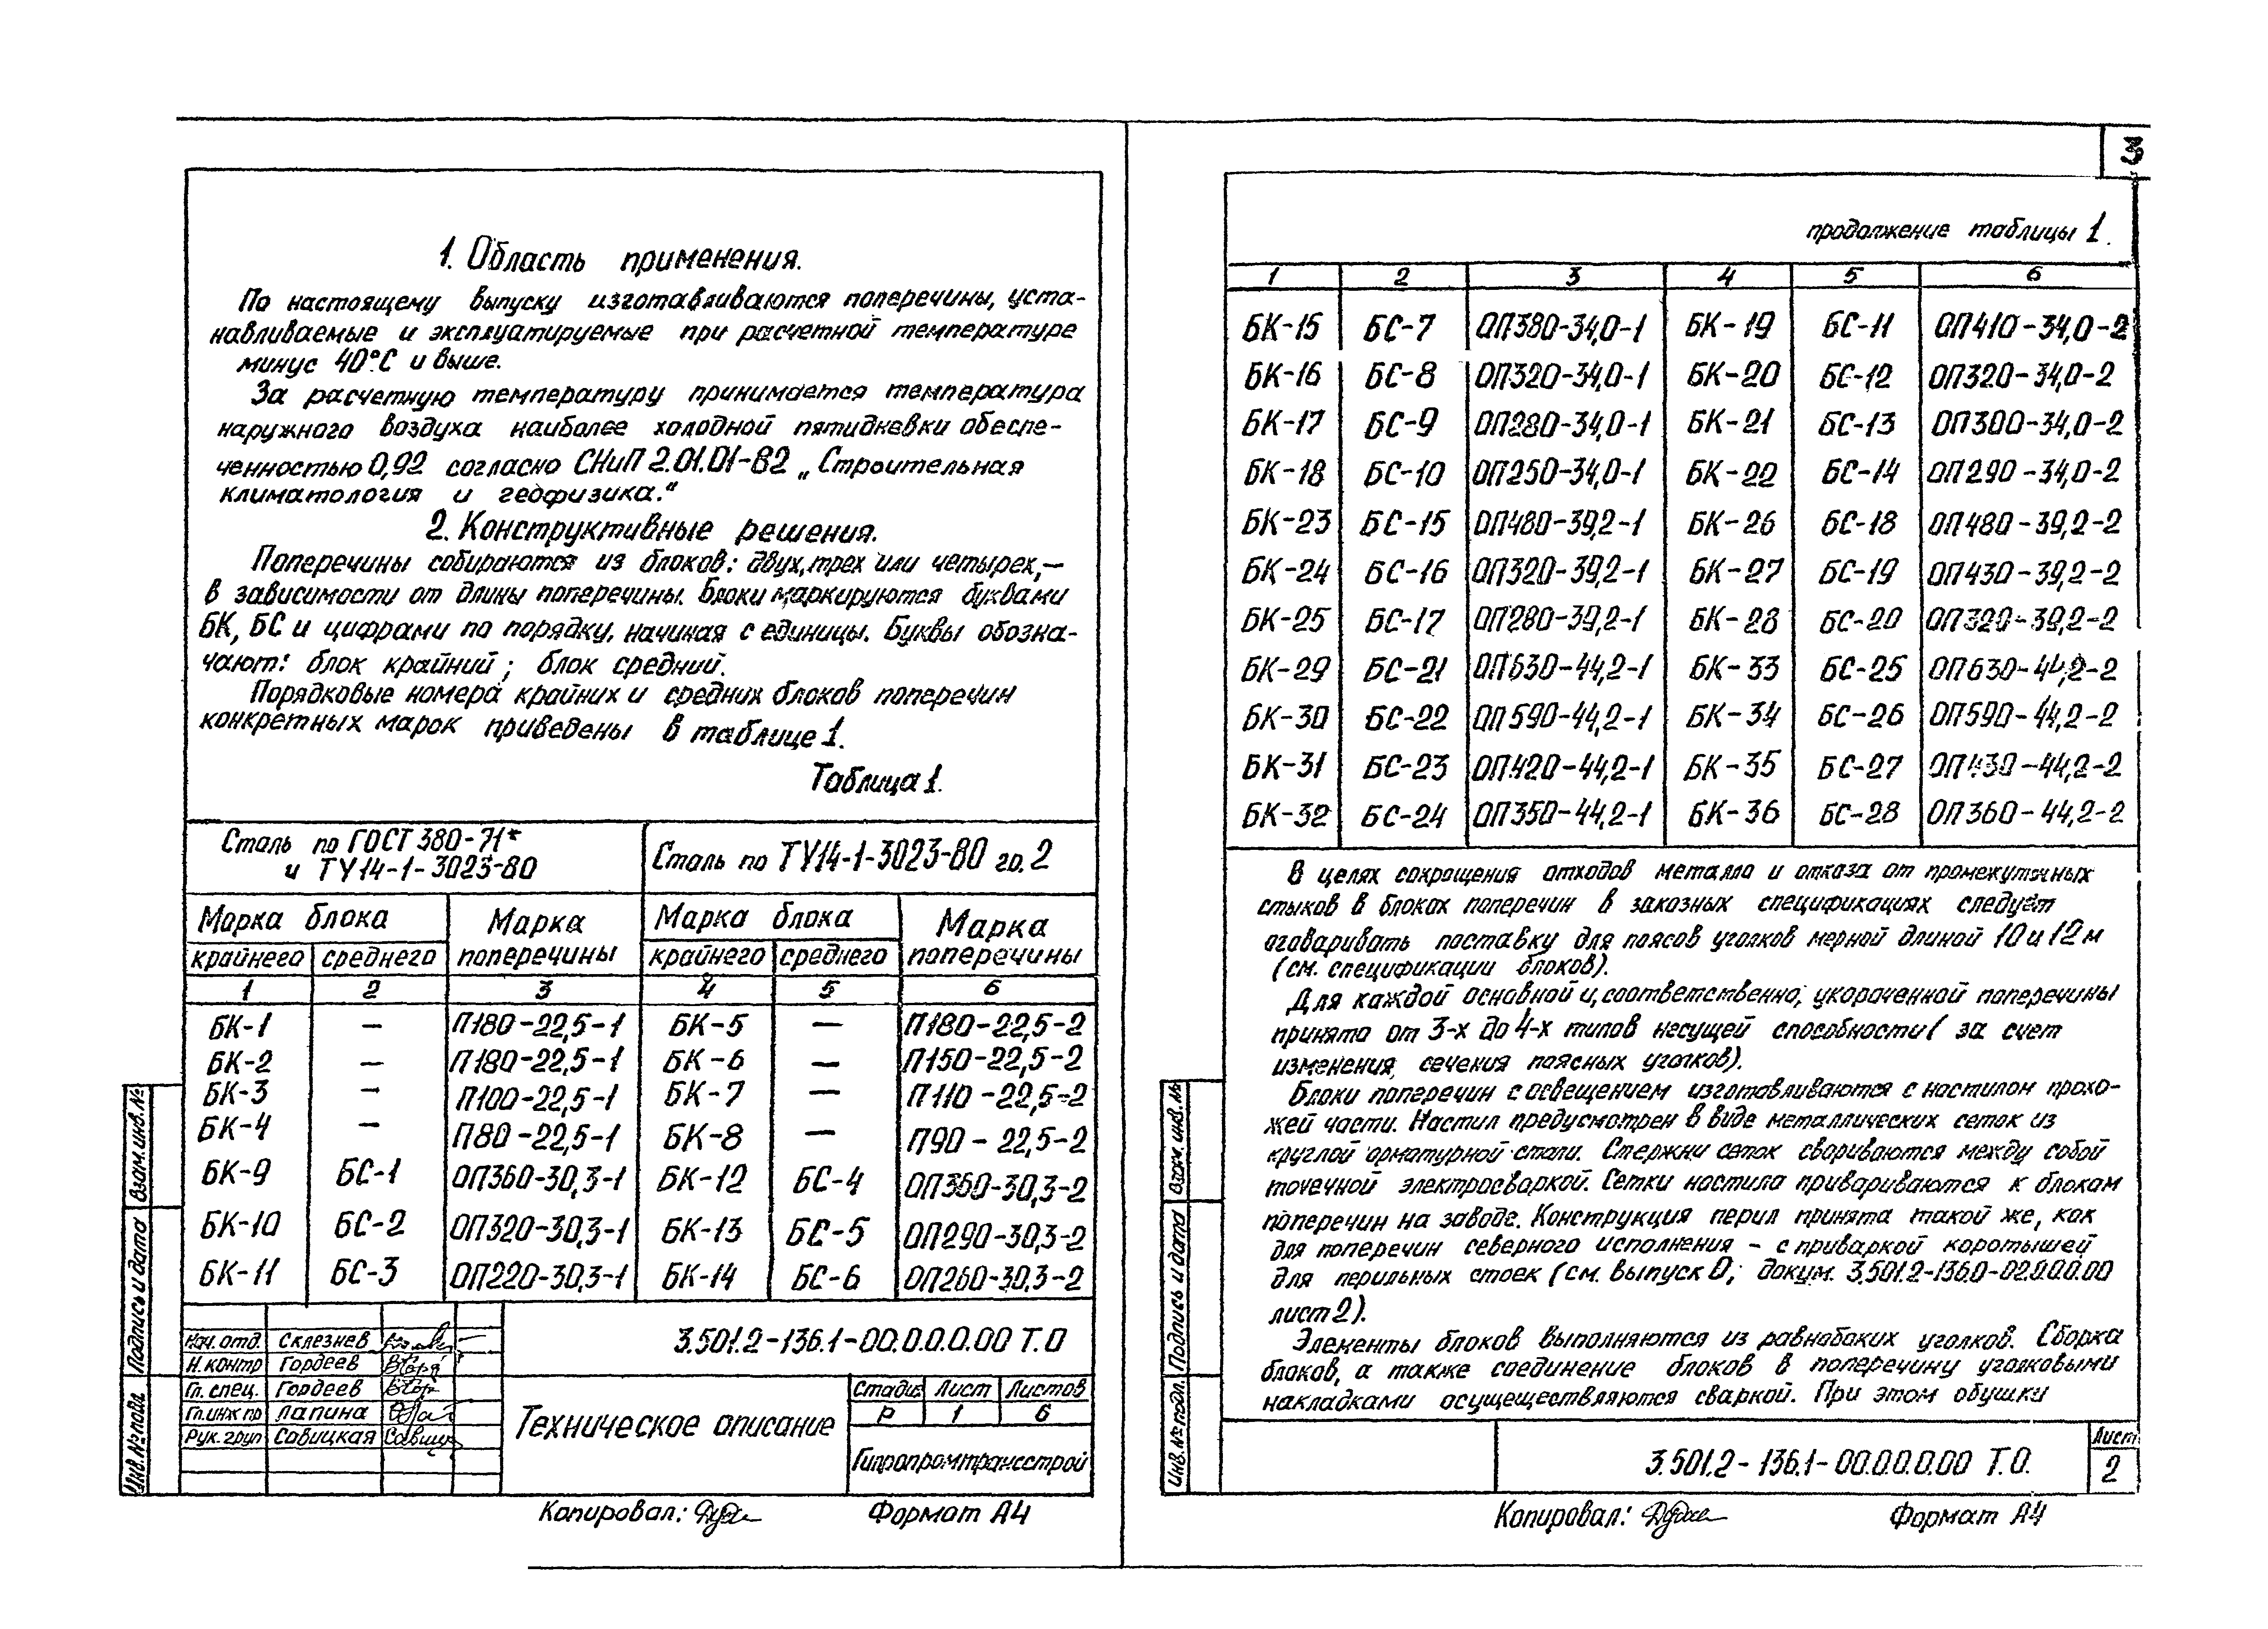 1. Область применения.
По настоящему выпуску изготавливаются поперечины, уста-
навливаемые и эксплуатируемые при расчетной температуре
минус 40°С и выше.
За расчетную температуру принимается температура
наружного воздуха наиболее холодной пятидневки обеспе-
ченностью 0,92 согласно СНиП 2.01.01-82 „Строительная
климатология и геофизика.“
2. Конструктивные решения.
Поперечины собираются из блоков: двух, трех или четырех,—
в зависимости от длины поперечины. Блоки маркируются буквами
БК, БС и цифрами по порядку, начиная с единицы. Буквы обозна-
чают: блок крайний; блок средний.
Порядковые номера крайних и средних блоков поперечин
конкретных марок приведены в таблице 1.
Таблица 1.
Сталь по ГОСТ 380-71*
и ТУ14-1-3023-80
Сталь по ТУ14-1-3023-80 гр. 2
Марка блока Марка Марка блока Марка
крайнего среднего поперечины крайнего среднего поперечины
1 2 3 4 5 6
БК-1 — П180-22,5-1 БК-5 — П180-22,5-2
БК-2 — П180-22,5-1 БК-6 — П150-22,5-2
БК-3 — П100-22,5-1 БК-7 — П110-22,5-2
БК-4 — П80-22,5-1 БК-8 — П90-22,5-2
БК-9 БС-1 ОП360-30,3-1 БК-12 БС-4 ОП360-30,3-2
БК-10 БС-2 ОП320-30,3-1 БК-13 БС-5 ОП290-30,3-2
БК-11 БС-3 ОП220-30,3-1 БК-14 БС-6 ОП260-30,3-2
Взам. инв. №
Подпись и дата
Инв. № подл.
Нач. отд. Склезнев
Н. контр Гордеев
Гл. спец. Гордеев
Гл. инж пр Лапина
Рук. груп Савицкая
3.501.2-136.1-00.0.0.0.00 Т.О
Техническое описание
Стадия Лист Листов
Р 1 6
Гипропромтрансстрой
Копировал:
Формат А4
3
продолжение таблицы 1.
1 2 3 4 5 6
БК-15 БС-7 ОП380-34,0-1 БК-19 БС-11 ОП410-34,0-2
БК-16 БС-8 ОП320-34,0-1 БК-20 БС-12 ОП320-34,0-2
БК-17 БС-9 ОП280-34,0-1 БК-21 БС-13 ОП300-34,0-2
БК-18 БС-10 ОП250-34,0-1 БК-22 БС-14 ОП290-34,0-2
БК-23 БС-15 ОП480-39,2-1 БК-26 БС-18 ОП480-39,2-2
БК-24 БС-16 ОП320-39,2-1 БК-27 БС-19 ОП430-39,2-2
БК-25 БС-17 ОП280-39,2-1 БК-28 БС-20 ОП320-39,2-2
БК-29 БС-21 ОП630-44,2-1 БК-33 БС-25 ОП630-44,2-2
БК-30 БС-22 ОП590-44,2-1 БК-34 БС-26 ОП590-44,2-2
БК-31 БС-23 ОП420-44,2-1 БК-35 БС-27 ОП430-44,2-2
БК-32 БС-24 ОП350-44,2-1 БК-36 БС-28 ОП360-44,2-2
В целях сокращения отходов металла и отказа от промежуточных
стыков в блоках поперечин в заказных спецификациях следует
оговаривать поставку для поясов уголков мерной длиной 10 и 12 м
(см. спецификации блоков).
Для каждой основной и, соответственно, укороченной поперечины
принято от 3-х до 4-х типов несущей способности (за счет
изменения сечения поясных уголков).
Блоки поперечин с освещением изготавливаются с настилом прохо-
жей части. Настил предусмотрен в виде металлических сеток из
круглой арматурной стали. Стержни сеток свариваются между собой
точечной электросваркой. Сетки настила привариваются к блокам
поперечин на заводе. Конструкция перил принята такой же, как
для поперечин северного исполнения – с приваркой коротышей
для перильных стоек (см. выпуск 0, докум. 3.501.2-136.0-02.0.0.0.00
лист 2).
Элементы блоков выполняются из равнобоких уголков. Сборка
блоков, а также соединение блоков в поперечину уголковыми
накладками осущеществляются сваркой. При этом обушки
Взам. инв. №
Подпись и дата
Инв. № подл.
3.501.2-136.1-00.0.0.0.00 Т.О.
Лист
2
Копировал:
Формат А4